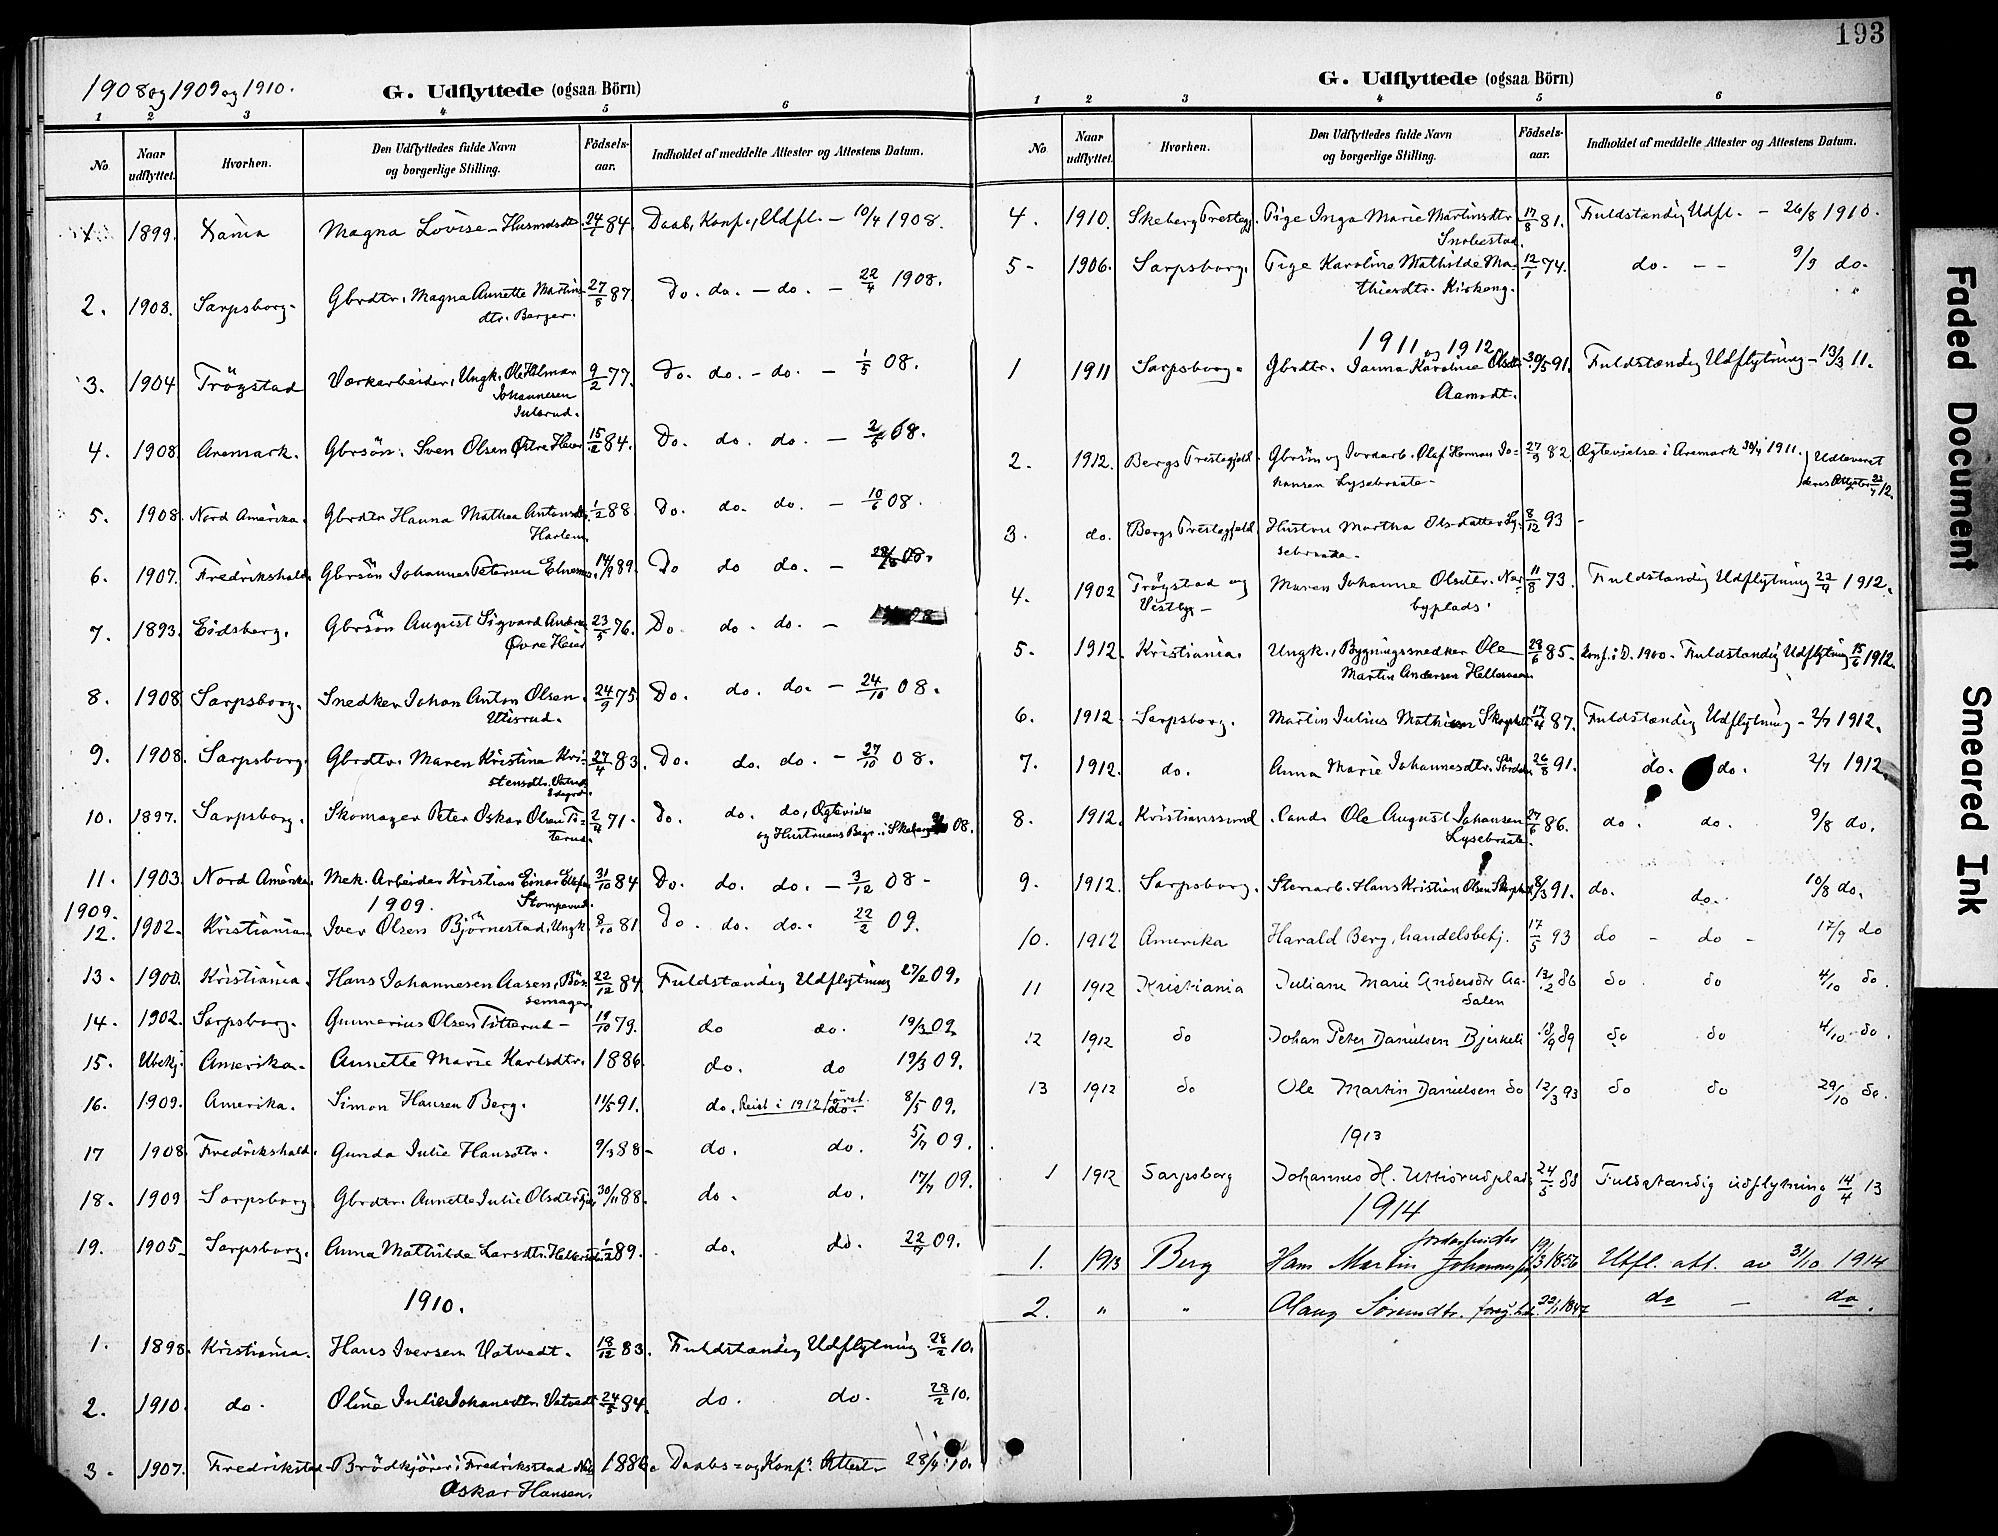 193
1908 og 1909 og 1910.
G. Udflyttede (ogsaa Börn)
1 2 3 4 5 6
No
Naar udflyttet.
Hvorhen.
Den Udflyttedes fulde Navn og borgerlige Stilling.
Födsels-aar.
Indholdet af meddelte Attester og Attestens Datum.
1. 1899. Magna Lovise 24/7 84. Daab, Konf., Udfl. — 10/4 1908.
2. 1908. Sarpsborg. Gbrdtr. Magna Annette Martins- 27/5 87. Do. do. — do. — 22/4 1908.
dtr. Berger.
3. 1904 Trögstad Ungk. Ole Hilmar 9/2 77. Do. do. — do. — 1/5 08.
Johannesen
Julsrud.
4. 1908. Aremark. Gbrsön. Sven Olsen Östre Heier 15/12 84. Do. do. do. — 08.
5. 1908. Nord Amerika. Gbrdtr. Hanna Mathea 1/2 88. Do. do. do. — 10/6 08.
Harlem.
6. 1907. Fredrikshald. Gbrsön Johannes Petersen 14/9 89. Do do do. — 08.
7. 1893. Eidsberg. Gbrsön August Sigvard 23/5 76. Do. do. do. —
Övre Heier
8. 1908 Sarpsborg. Snedker Johan Anton Olsen 24/9 75. Do. do. do. — 24/10 08.
Utisrud.
9. 1908. Sarpsborg. Gbrdtr. Maren Kristina Kri- 27/4 83. Do. do. do. — 27/10 08.
stensdtr.
10. 1897. Sarpsborg. Skomager Peter Oskar Olsen Ti- 2/4 71. Do. do. do, Ögtevielse
terud. og Hustruens Begr. i 08.
11. 1903. Nord Amerika. Mek. Arbeider Kristian Einar 31/10 84 Do. do. do. — 3/12 08.
1909. 1909.
12. 1902. Kristiania. Iver Olsen Björnestad, Ungk. 8/10 81. Do. do. do. 22/2 09.
13. 1900. Kristiania. Hans Johannesen Aasen, Bös- 22/12 84. Fuldstændig Udflytning 27/2 09.
semager.
14. 1902. Sarpsborg. Gunnerius Olsen Titterud — 19/10 79. do do. 19/3 09.
15. Ubekj. Amerika. Annette Marie Karlsdtr. 1886. do. do 19/3 09.
16. 1909. Amerika. Simon Hansen Berg. 11/5 91. do. Reist i 1912 först. do. 8/5 09.
17 1908. Fredrikshald. Gunda Julie Hansdtr. 9/3 88. do. do. 5/7 09.
18. 1909 Sarpsborg Gbrdtr. Annette Julie Olsdtr. 30/11 88. do. do. 17/7 09.
19. 1905. Sarpsborg. Anna Mathilde Larsdtr. 89. do. do. 22/9 09.
1910.
1. 1898. Kristiania. Hans Iversen Vatvedt. 18/12 83. Fuldstændig Udflytning 28/2 10.
2. 1910. do. Oline Julie Johansdtr. Vatvedt 24/5 84. do. do. 28/2 10.
3. 1907. Fredrikstad Brödkjörer i Fredrikstad 1886. Daabs- og Konf. Attest. 10.
Oskar Hansen.
G. Udflyttede (ogsaa Börn)
1 2 3 4 5 6
No
Naar udflyttet.
Hvorhen.
Den Udflyttedes fulde Navn og borgerlige Stilling.
Födsels-aar.
Indholdet af meddelte Attester og Attestens Datum.
4. 1910. Skeberg Prestegj. Pige Inga Marie Martinsdtr 17/8 81. Fuldstændig Udfl. — 26/8 1910.
5. 1906. Sarpsborg. Pige Karoline Mathilde Ma- 12/1 74. do. — — 9/9 do.
thiesdtr. Kirkeng.
1911 og 1912
1 1911 Sarpsborg. Gbrdtr. Janna Karoline Olsdtr 30/5 91. Fuldstændig Udflytning — 13/3 11.
Aamodt.
2. 1912. Bergs Prestegjeld. Gbrsön og Jordarb. Olaf Herman Jo- 27/9 82. Ögtevielse i Aremark 30/4 1911. Udleveret
hansen Lysebraate.
3. do. Bergs Prestegjeld Hustru Martha Olsdatter Ly- 8/12 93 —
sebraate.
4. 1902 Trögstad og Maren Johanne Olsdtr. 11/8 73. Fuldstændig Udflytning 22/4 1912.
Vestby — byplads.
5. 1912. Kristiania. Ungk., Bygningssnedker Ole 28/6 85. Konf. i D. 1900. Fuldstændig Udflytning 15/6 1912.
Martin Andersen
6. 1912. Sarpsborg. Martin Julius 17/4 87. Fuldstændig Udflytning — 2/7 1912.
7. 1912. do. Anna Marie Johannesdtr. 26/8 91. do. do. 2/7 1912.
8. 1912. Kristianssund Cand. Ole August Johansen 27/6 86. do. do. 9/8 do.
Lysebraate.
9. 1912. Sarpsborg. Stenarb. Hans Kristian Olsen 8/3 91. do. do. 10/8 do.
10. 1912 Amerika Harald Berg, handelsbetj. 17/5 93 do — do — 17/9 do
11 1912 Kristiania Juliane Marie Andersdtr Aa- 86 do do 4/10 do.
dalen
12 1912 do Johan Peter Danielsen Bjerkeli 18/9 89 do do 4/10 do.
13 1912 do Ole Martin Danielsen do 12/3 93 do do 29/10 do.
1913
1 1912 Sarpsborg Johannes H. 24/5 88 Fuldstændig udflytning 14/4 13
1914
1. 1913 Berg Hans Martin 19/3 1856 Utfl. att. av 31/10 1914
2. " " do — do.
Faded Document
Smeared Ink